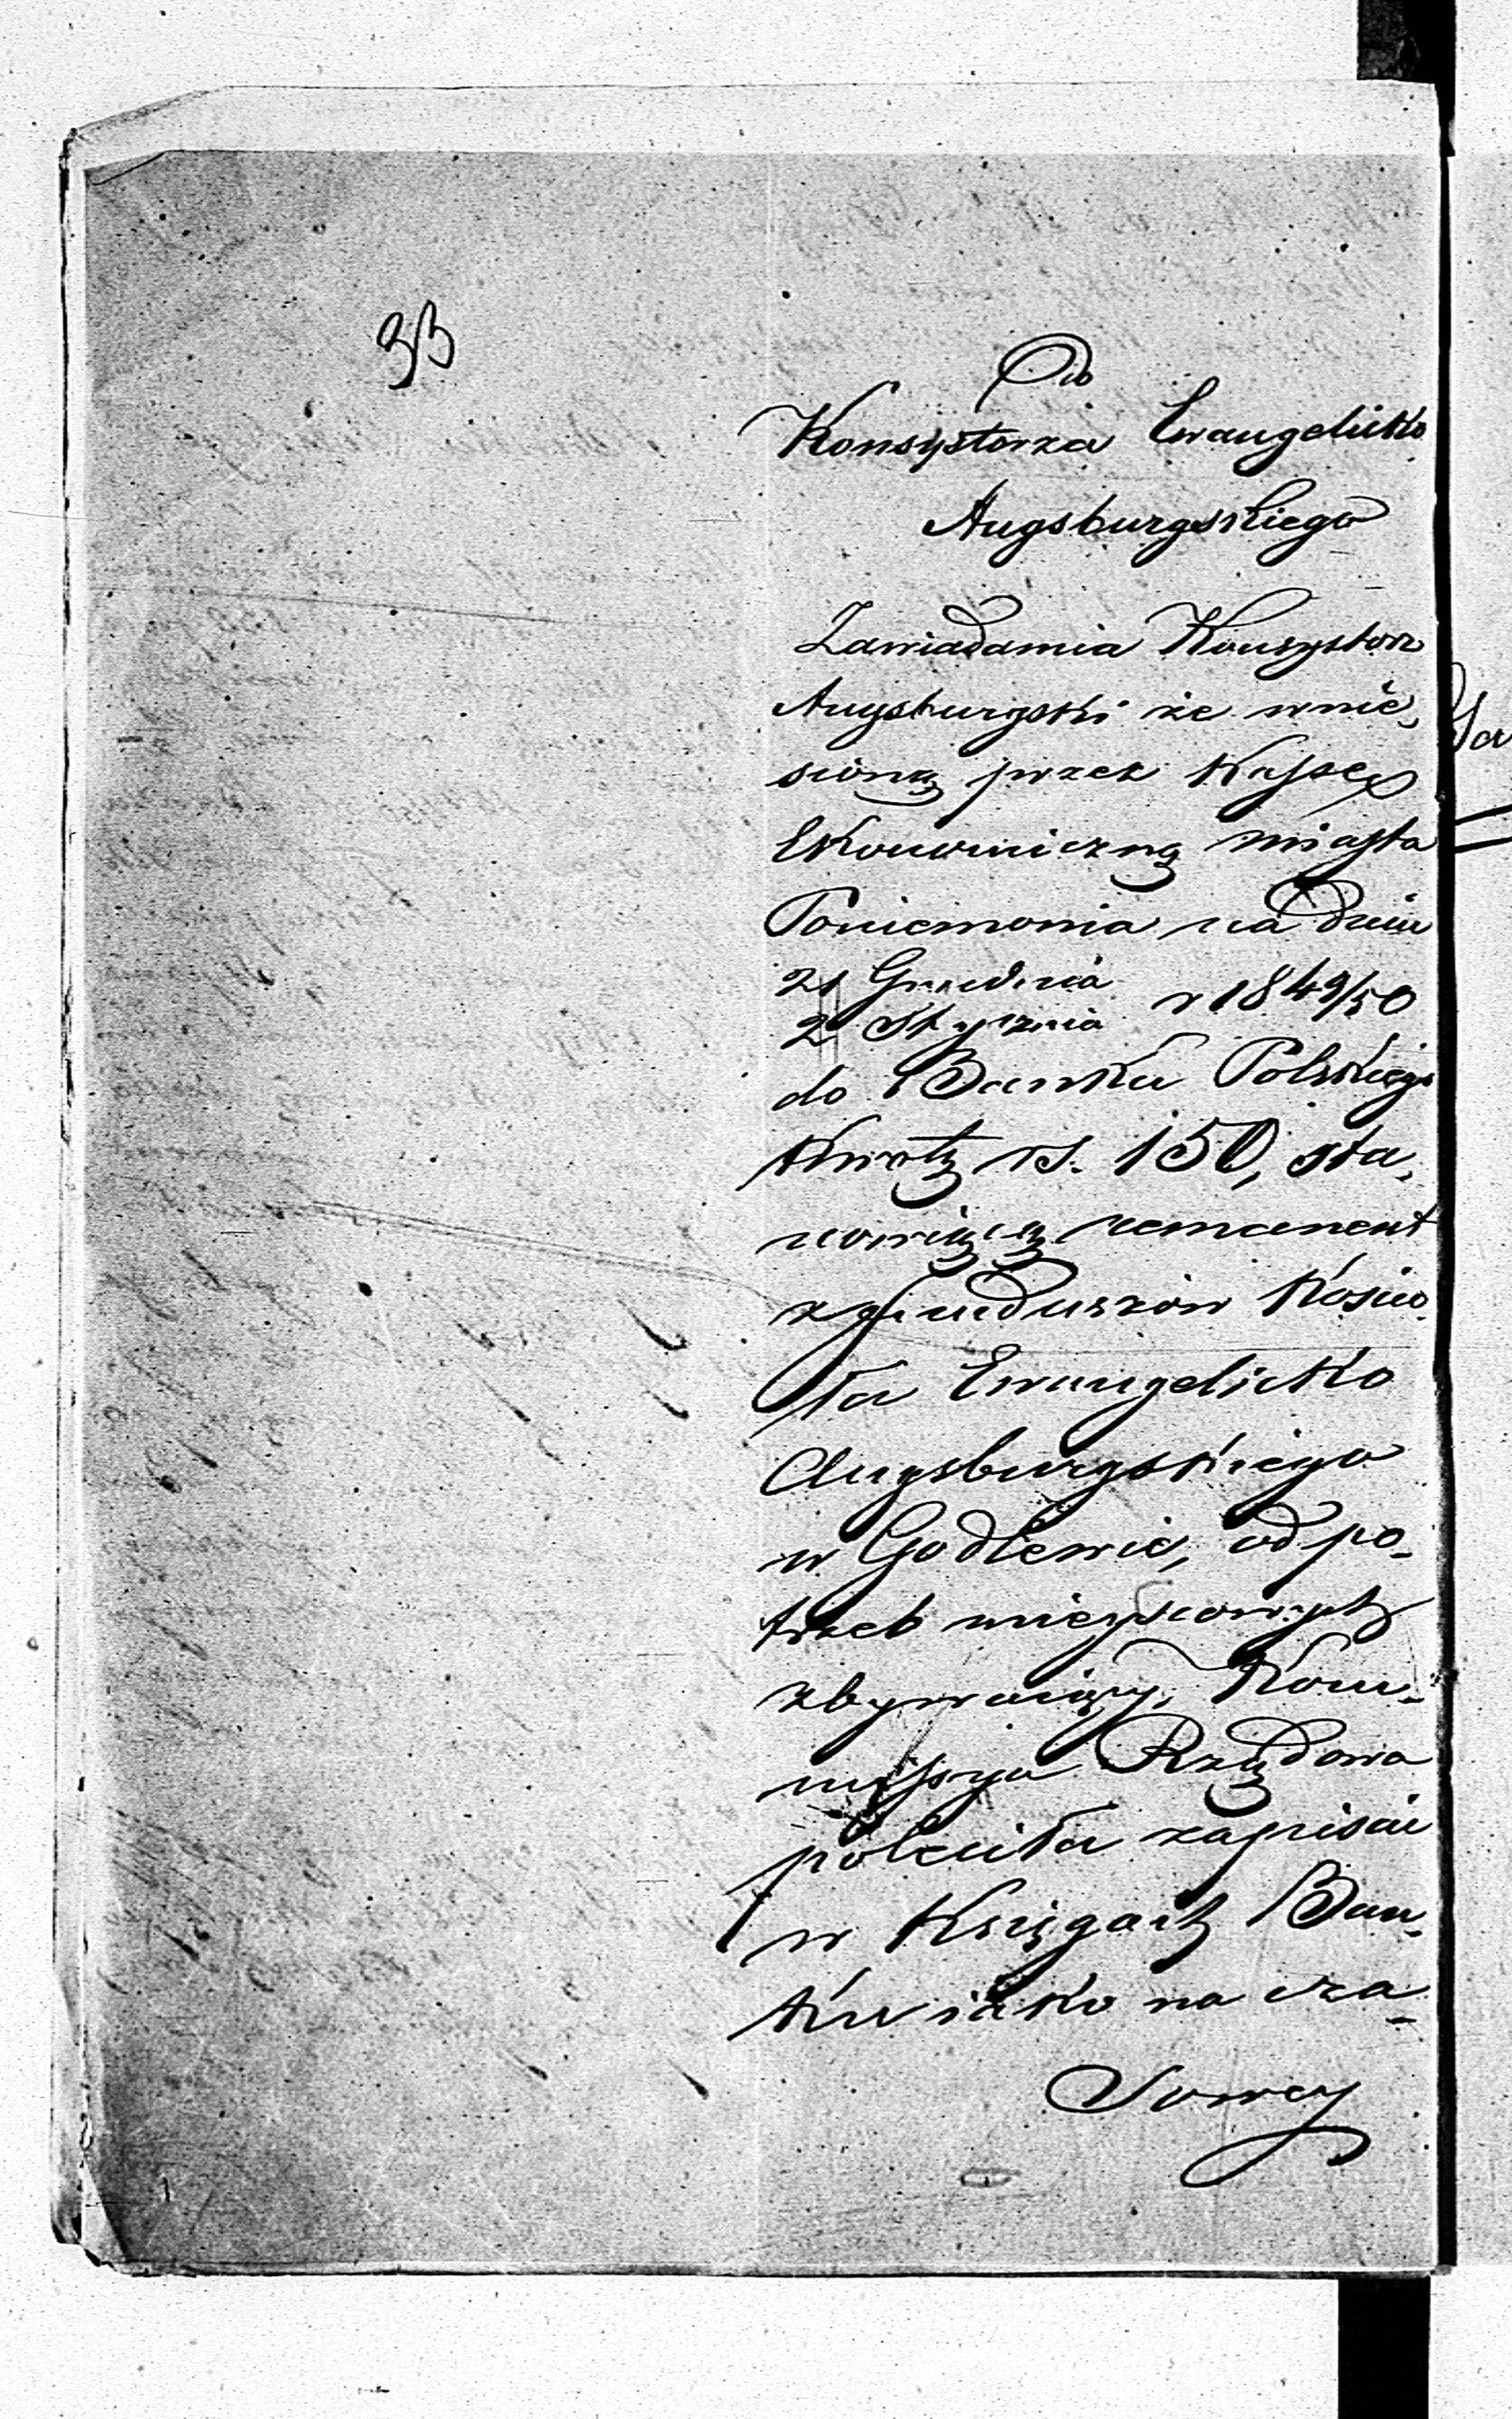 33
Do
Konsystorza Ewangelicko
Augsburgskiego
Zawiadamia Konsystorz
Augsburgski że wnie„
sioną przez Kassę
Ekonomiczną miasta
Poniemonia na dniu
21 Grudnia
2 Stycznia r 1849/50
do Banku Polskiego
Kwotę rs. 150, sta„
nowiącą remanent
z funduszów Kościo„
ła Ewangelicko
Augsburgskiego
w Godlewie, od po-
trzeb miejscowych
zbywaiący, Kom-
missya Rządowa
poleciła zapisać
w Księgach Ban„
ku iako na cza-
sowey